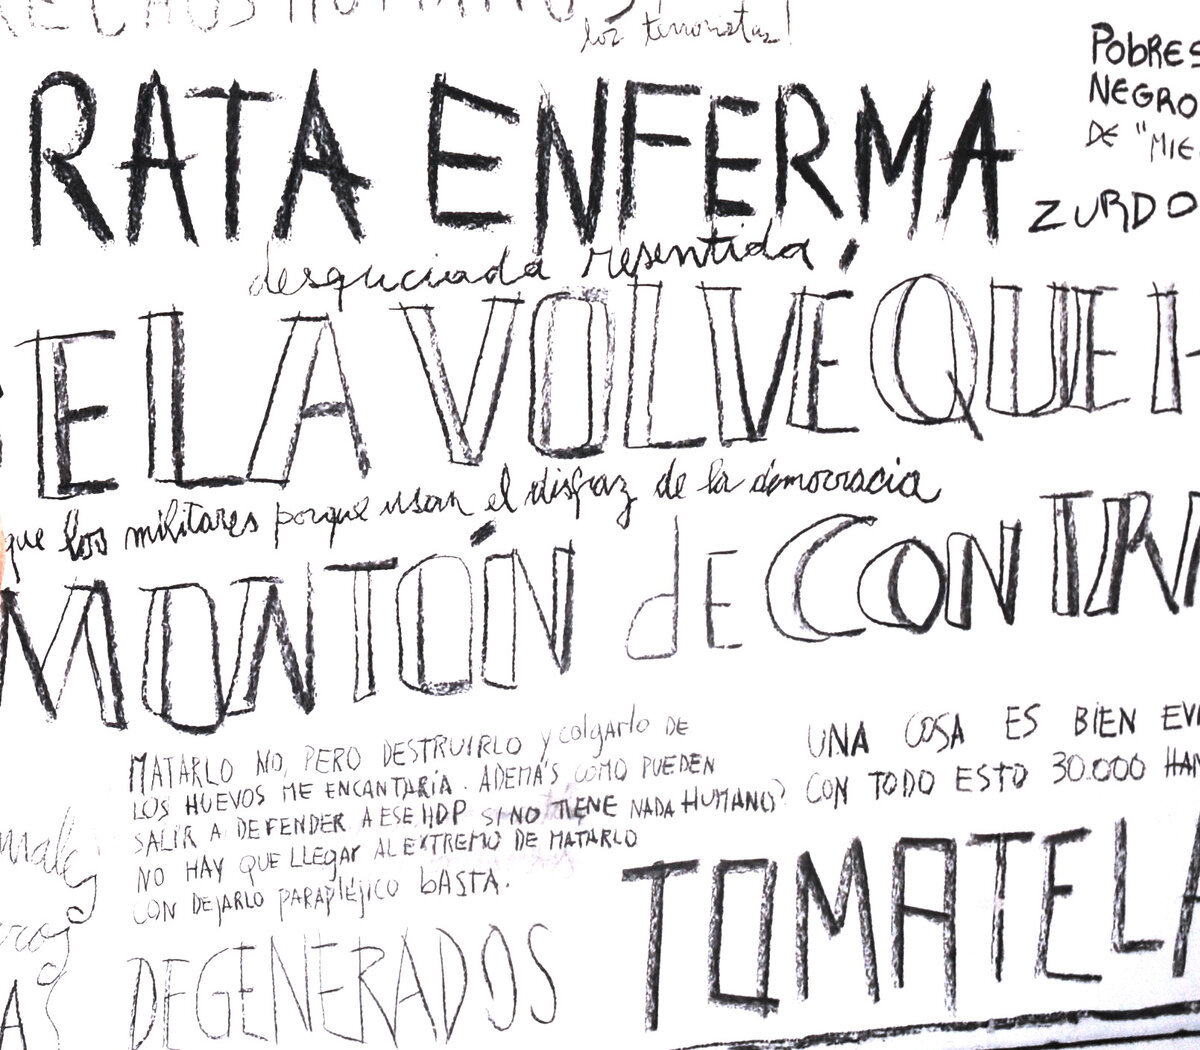 los terroristas!
POBRES
NEGRO
DE "MIE
RATA ENFERMA
ZURDO
desquiciada resentida
ELA VOLVÉ QUE
que los militares porque usan el disfraz de la democracia
MONTÓN dE CON
MATARLO NO, PERO DESTRUIRLO y colgarlo DE
LOS HUEVOS ME ENCANTARÍA. ADEMÁS COMO PUEDEN
SALIR A DEFENDER A ESE HDP SI NO TIENE NADA HUMANO?
NO HAY QUE LLEGAR AL EXTREMO DE MATARLO
CON DEJARLO PARAPLÉJICO bASTA.
UNA COSA ES BIEN EVI
CON TODO ESTO 30.000 HAN
DEGENERADOS
TOMATELA